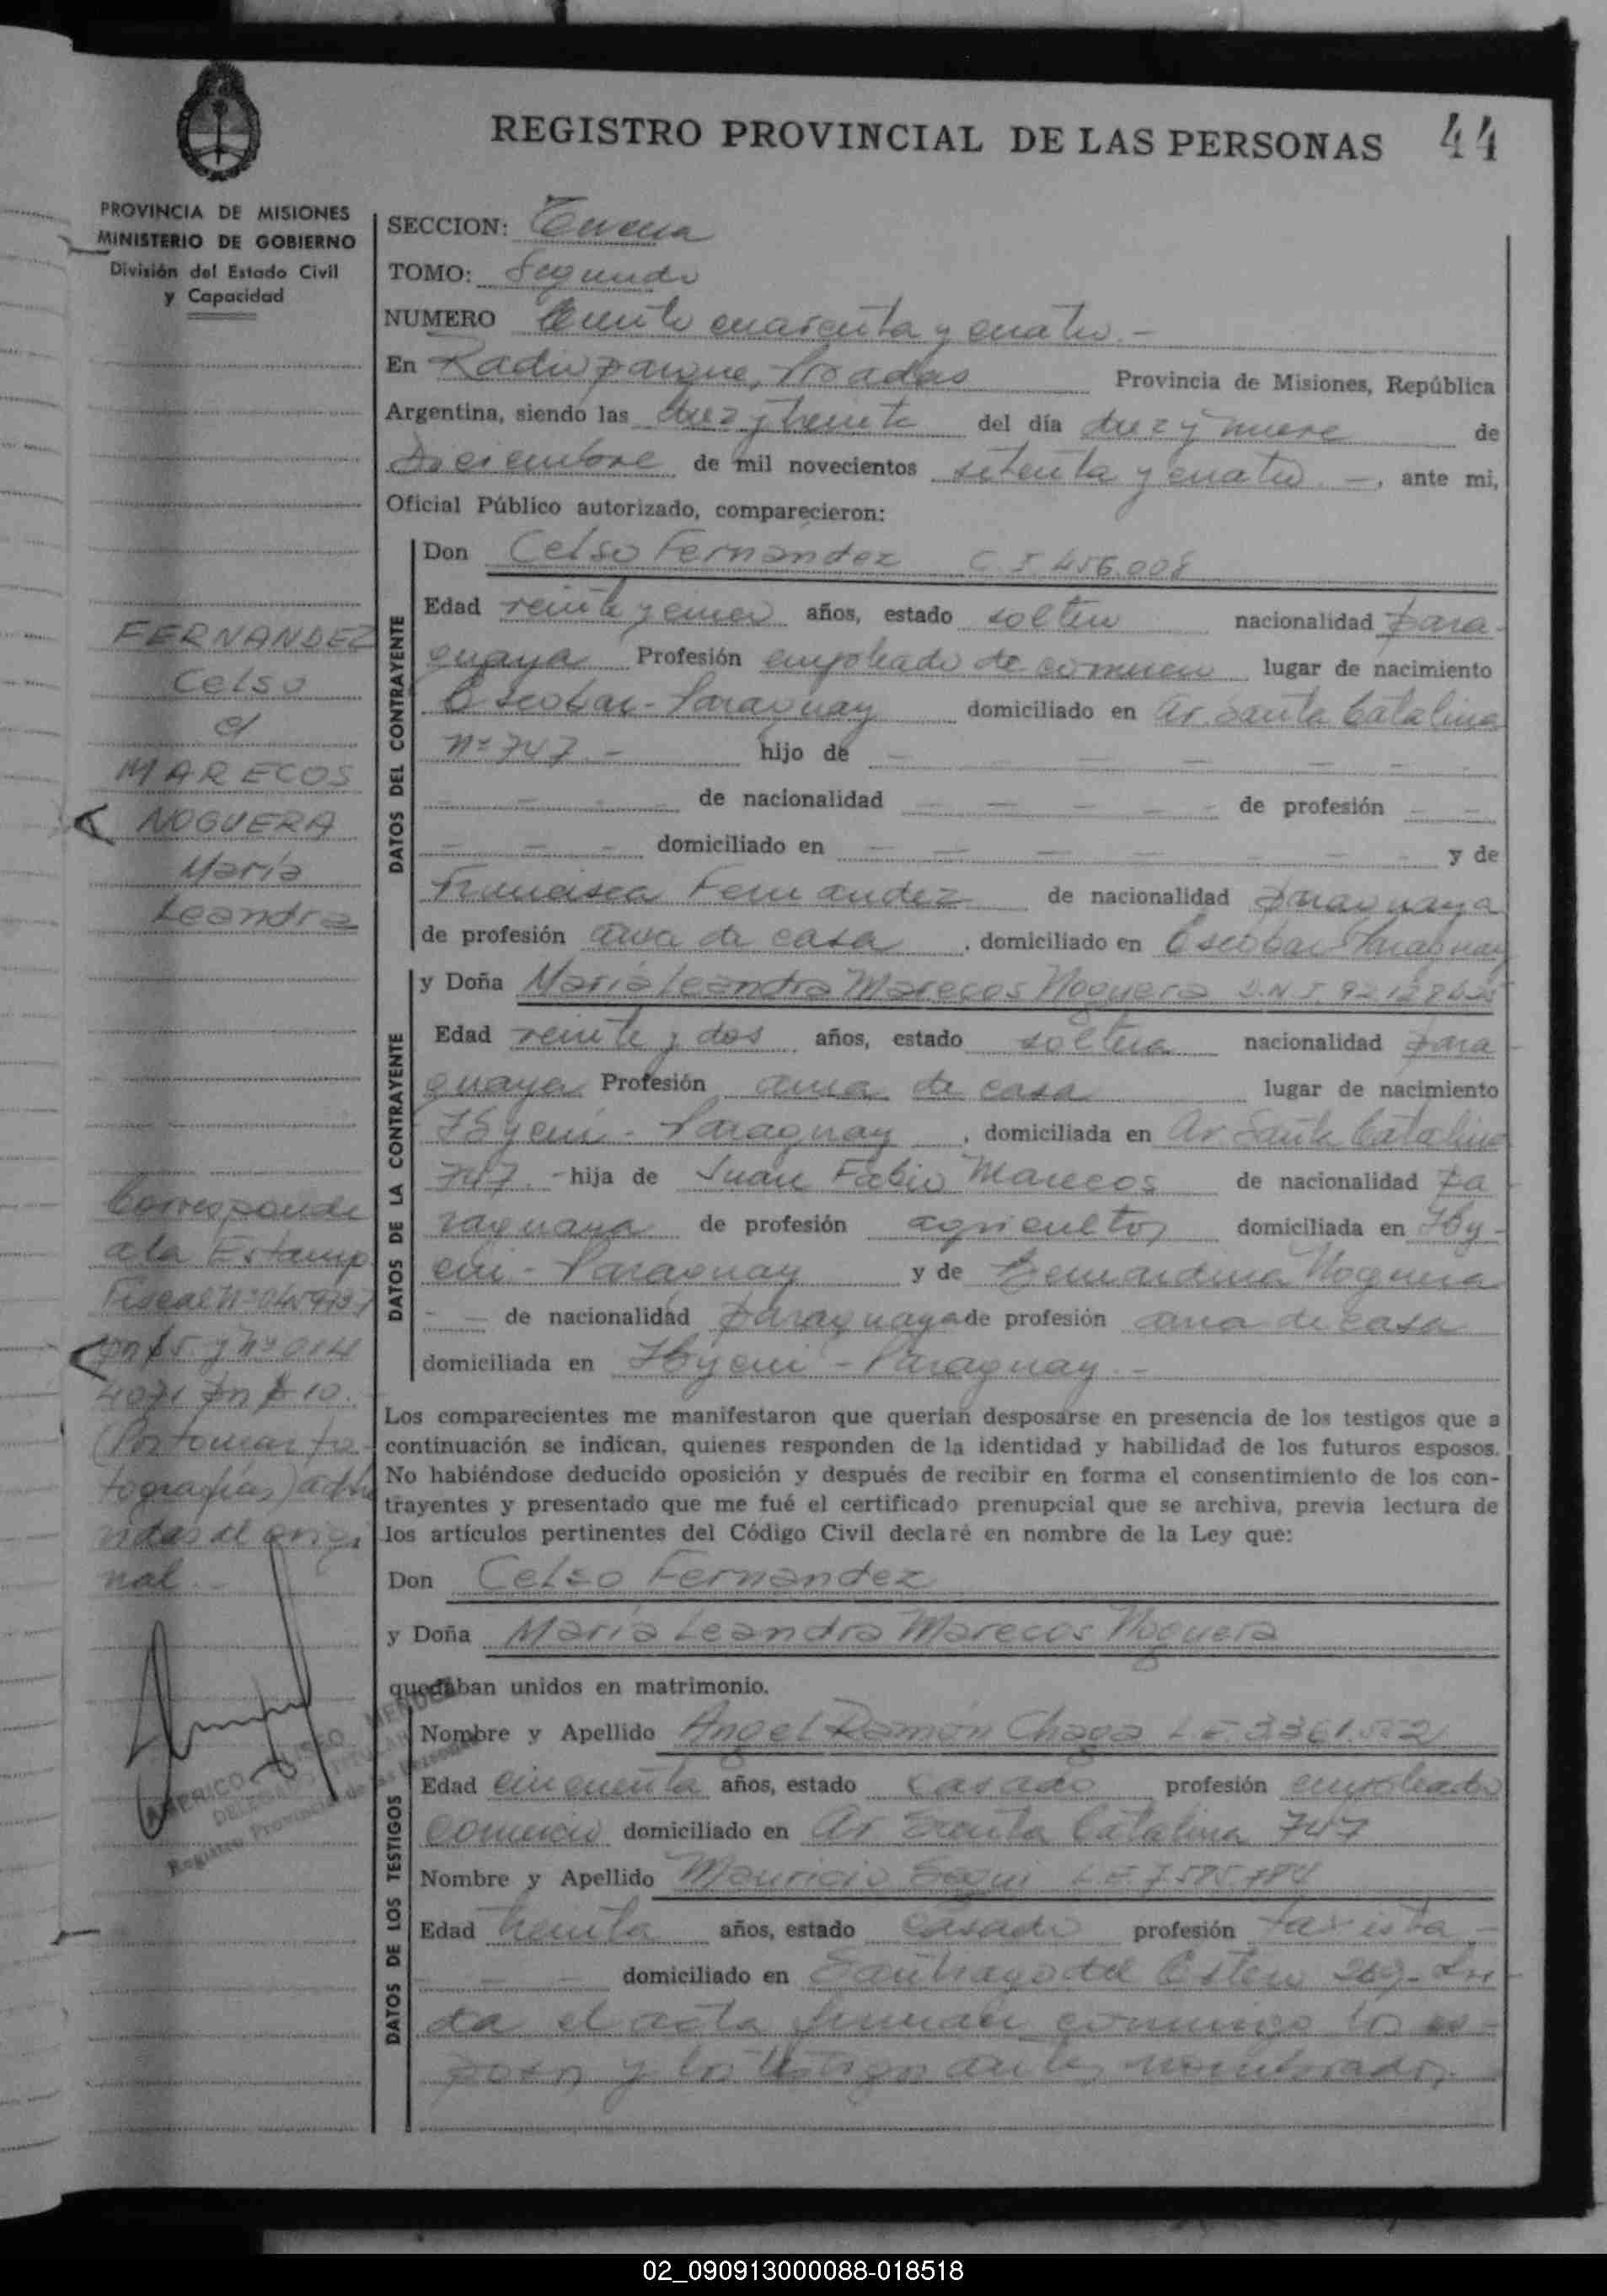 REGISTRO PROVINCIAL DE LAS PERSONAS 44
PROVINCIA DE MISIONES
MINISTERIO DE GOBIERNO
División del Estado Civil
y Capacidad
SECCION:
TOMO: Segundo
NUMERO Ciento cuarenta y cuatro.-
En Radio parque, Posadas Provincia de Misiones, República
Argentina, siendo las diez y treinta del día diez y nueve de
Diciembre de mil novecientos setenta y cuatro. -, ante mi,
Oficial Público autorizado, comparecieron:
DATOS DEL CONTRAYENTE
Don Celso Fernandez C.I. 456.008
Edad veinte y cinco años, estado soltero nacionalidad para-
guaya Profesión empleado de comercio lugar de nacimiento
Escobar - Paraguay domiciliado en Av. Santa Catalina
nº 747.- hijo de - - - - - -
- - - - - de nacionalidad - - - - - de profesión - -
- - - domiciliado en - - - - - - - y de
Francisca Fernandez de nacionalidad paraguaya
de profesión ama de casa, domiciliado en Escobar Paraguay
FERNANDEZ
Celso
c/
MARECOS
NOGUERA
María
Leandra
DATOS DE LA CONTRAYENTE
y Doña María Leandra Marecos Noguera D.N.I.
Edad veinte y dos años, estado soltera nacionalidad para-
guaya Profesión ama de casa lugar de nacimiento
Ibycui - Paraguay, domiciliada en Av. Santa Catalina
747.- hija de Juan Fabio Marecos de nacionalidad pa-
raguaya de profesión agricultor domiciliada en Iby-
cui - Paraguay y de Bernardina Noguera
- - de nacionalidad paraguaya de profesión ama de casa
domiciliada en Ibycui - Paraguay.-
Los comparecientes me manifestaron que querían desposarse en presencia de los testigos que a
continuación se indican, quienes responden de la identidad y habilidad de los futuros esposos.
No habiéndose deducido oposición y después de recibir en forma el consentimiento de los con-
trayentes y presentado que me fué el certificado prenupcial que se archiva, previa lectura de
los artículos pertinentes del Código Civil declaré en nombre de la Ley que:
Don Celso Fernandez
y Doña María Leandra Marecos Noguera
quedaban unidos en matrimonio.
Corresponde
a la Estamp.
Fiscal Nº
$5 y Nº 014
4071 $10.
nal.-
AMERICO ELISEO MENDEZ
DELEGADO TITULAR
Registro Provincial de las Personas
DATOS DE LOS TESTIGOS
Nombre y Apellido Angel Ramón Chaga L.E. 3.361.552
Edad cincuenta años, estado casado profesión empleado
comercio domiciliado en Av Santa Catalina 747
Nombre y Apellido Mauricio Segui L.E. 7.585.784
Edad treinta años, estado casado profesión taxista -
- - - domiciliado en Santiago del Estero 269.- Leí-
da el acta firman conmigo los es-
posos y los testigos antes nombrados.
02_090913000088-018518